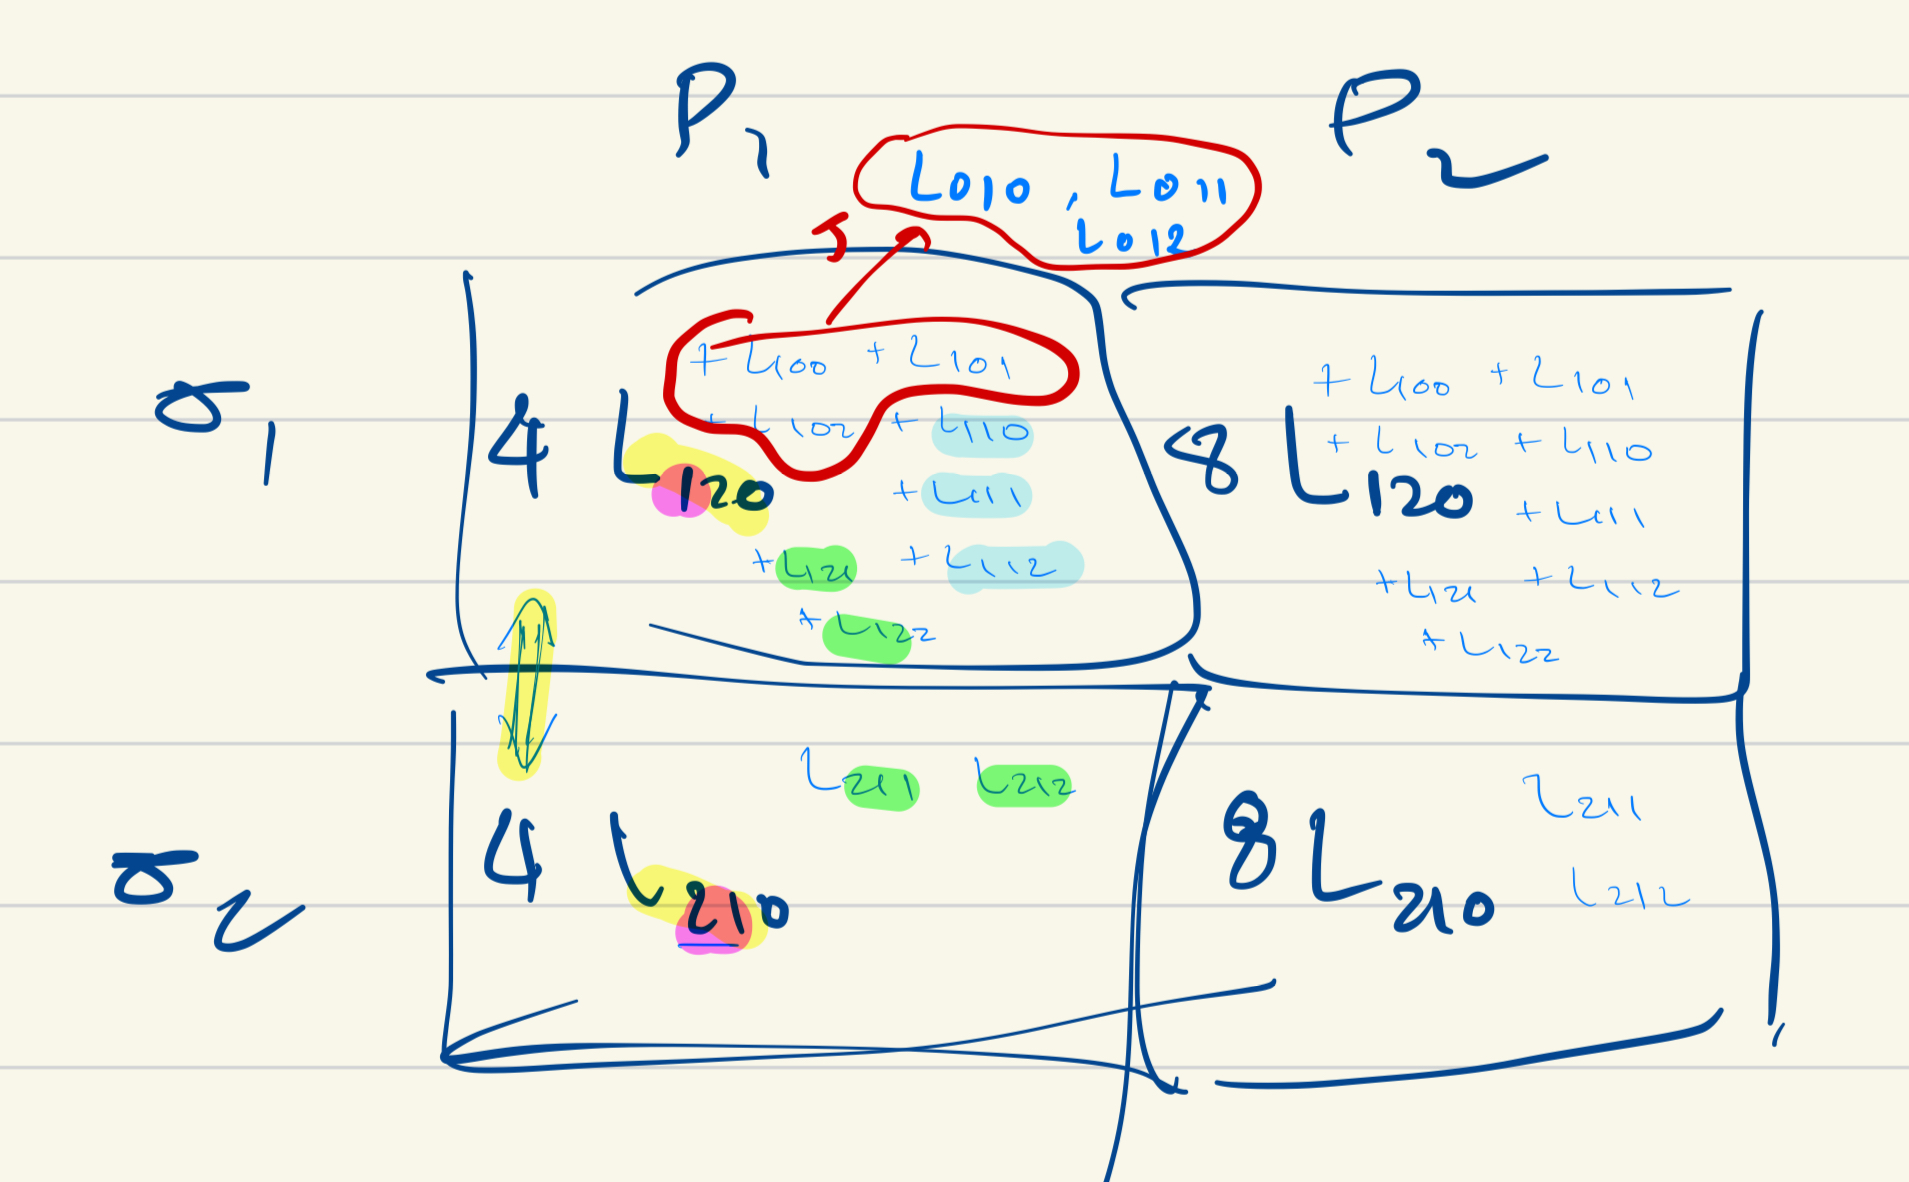 P₁ P₂
L₀₁₀ , L₀₁₁
L₀₁₂
σ₁
4 L₁₂₀
+ L₁₀₀ + L₁₀₁
+ L₁₀₂ + L₁₁₀
+ L₁₁₁
+ L₁₂₁ + L₁₁₂
+ L₁₂₂
8 L₁₂₀
+ L₁₀₀ + L₁₀₁
+ L₁₀₂ + L₁₁₀
+ L₁₁₁
+ L₁₂₁ + L₁₁₂
+ L₁₂₂
σ₂
4 L₂₁₀
L₂₁₁ L₂₁₂
8 L₂₁₀
L₂₁₁
L₂₁₂